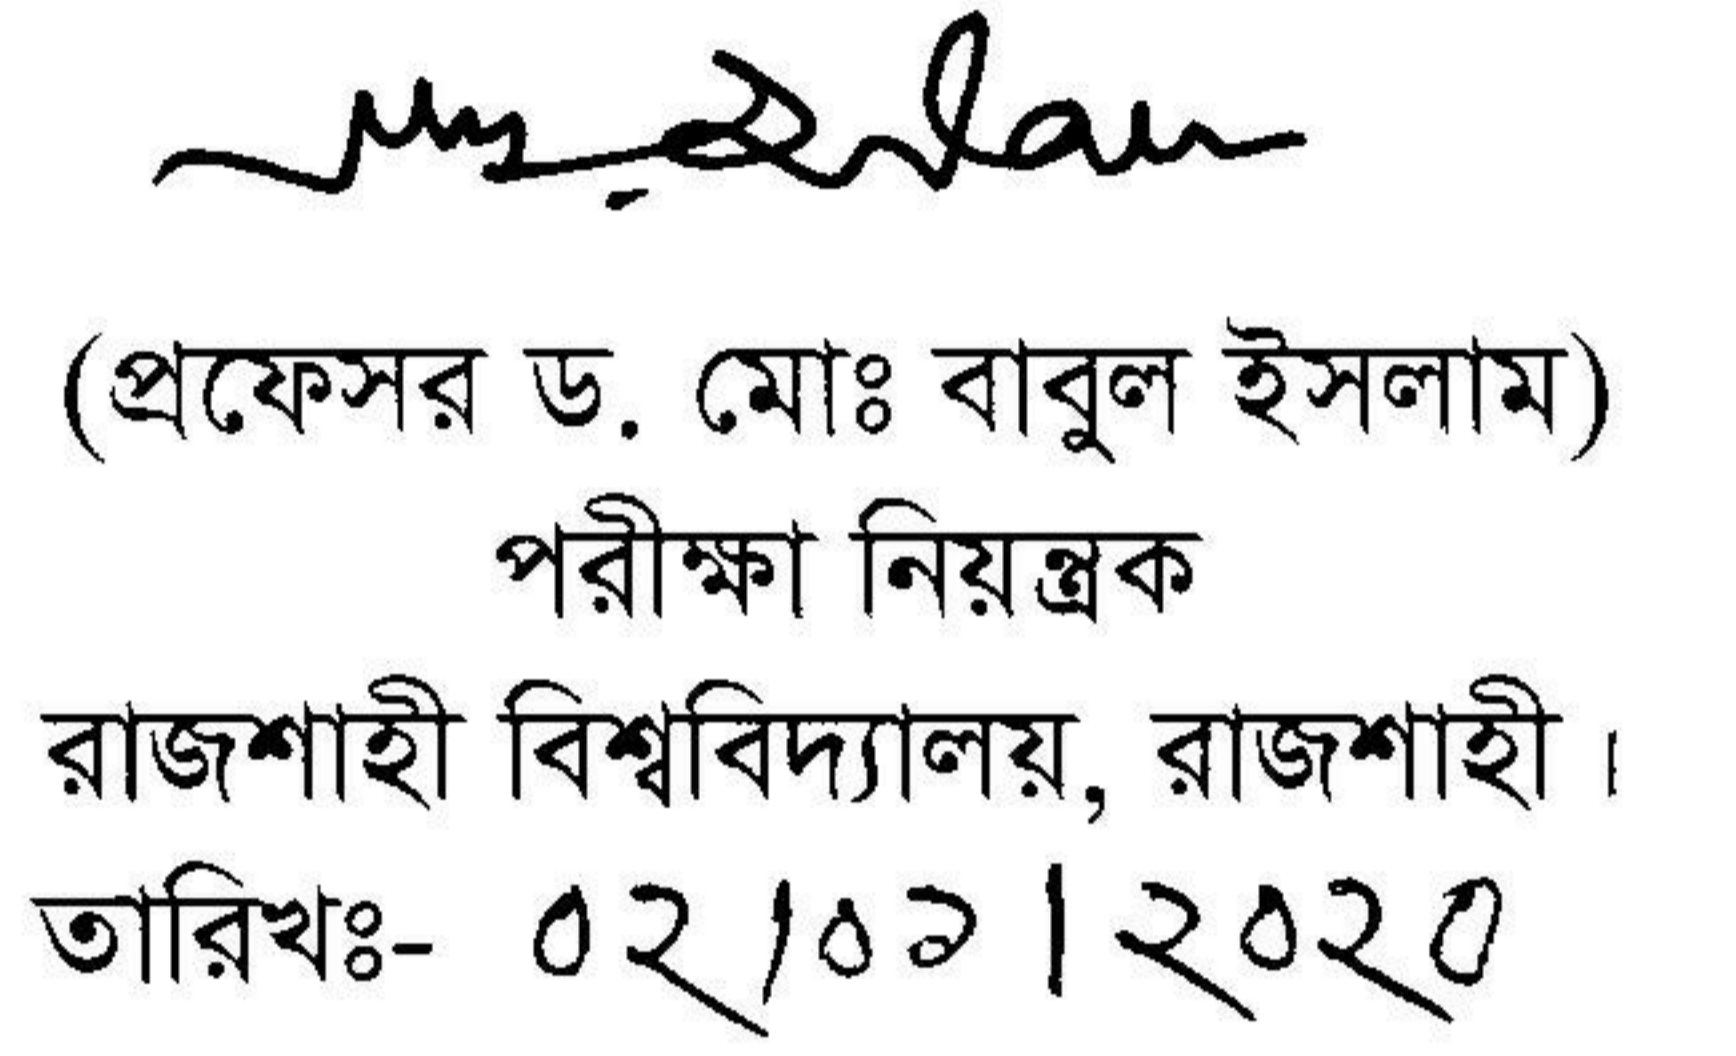 (প্রফেসর ড. মোঃ বাবুল ইসলাম)
পরীক্ষা নিয়ন্ত্রক
রাজশাহী বিশ্ববিদ্যালয়, রাজশাহী।
তারিখঃ- ০২/০১/২০২০